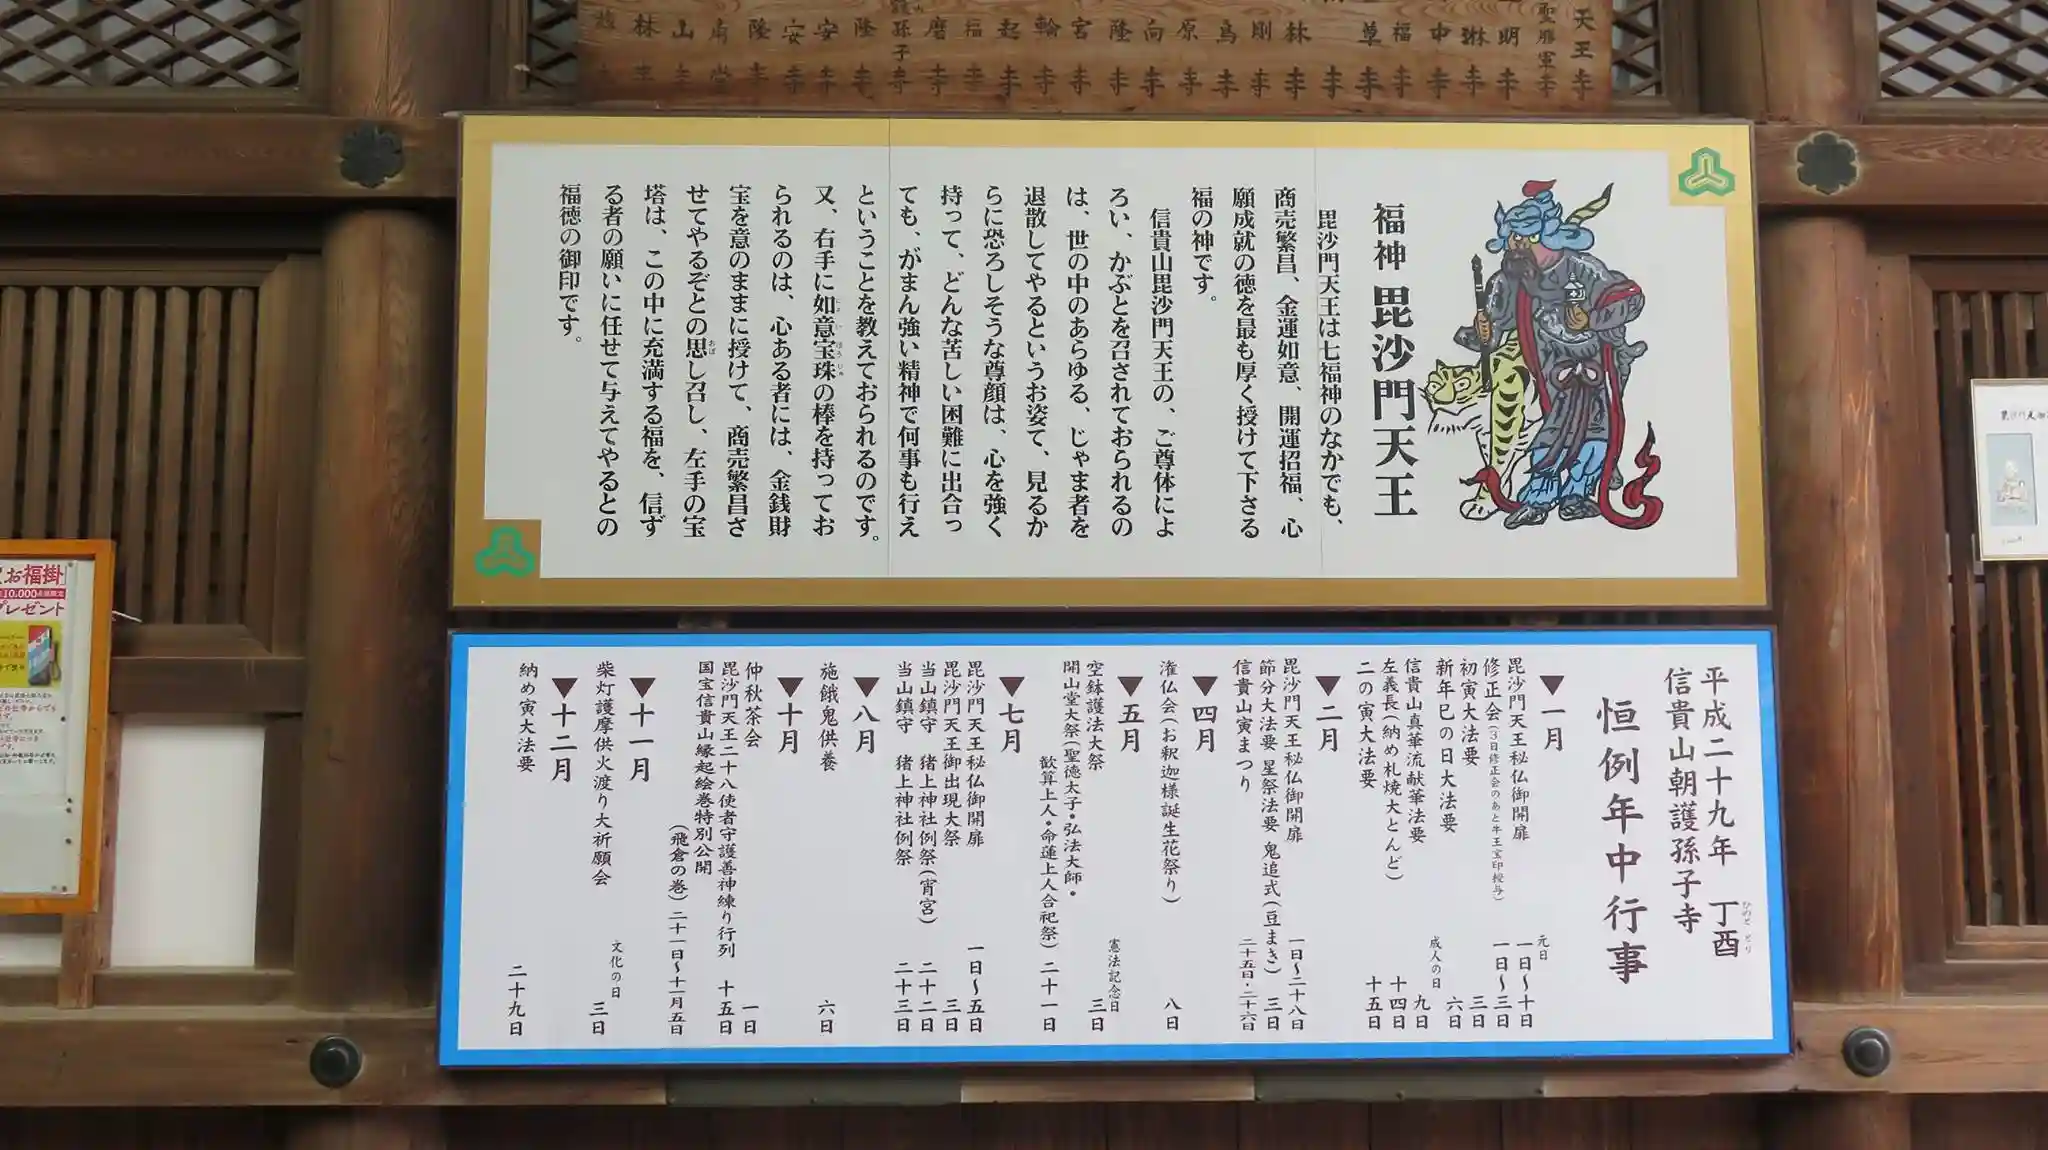 天王寺
聖雁軍寺
明寺
琳寺
中寺
福寺
草寺
林寺
剛寺
為寺
原寺
向寺
隆寺
宮寺
輪寺
起寺
福寺
磨寺
孫子寺
隆寺
安寺
安寺
隆寺
南堂
山寺
林寺
福神 毘沙門天王
毘沙門天王は七福神のなかでも、
商売繁昌、金運如意、開運招福、心
願成就の徳を最も厚く授けて下さる
福の神です。
信貴山毘沙門天王の、ご尊体によ
ろい、かぶとを召されておられるの
は、世の中のあらゆる、じゃま者を
退散してやるというお姿て、見るか
らに恐ろしそうな尊顔は、心を強く
持って、どんな苦しい困難に出合っ
ても、がまん強い精神で何事も行え
ということを教えておられるのです。
又、右手に如意宝珠の棒を持ってお
られるのは、心ある者には、金銭財
宝を意のままに授けて、商売繁昌さ
せてやるぞとの思し召し、左手の宝
塔は、この中に充満する福を、信ず
る者の願いに任せて与えてやるとの
福徳の御印です。
平成二十九年 丁酉
ひのと とり
信貴山朝護孫子寺
恒例年中行事
▼一月
毘沙門天王秘仏御開扉 元日 一日〜十日
修正会(3日修正会のあと牛王宝印授与) 一日〜三日
初寅大法要 三日
新年巳の日大法要 六日
信貴山真華流献華法要 成人の日 九日
左義長(納め札焼大とんど) 十四日
二の寅大法要 十五日
▼二月
毘沙門天王秘仏御開扉 一日〜二十八日
節分大法要 星祭法要 鬼追式(豆まき) 三日
信貴山寅まつり 二十五日・二十六日
▼四月
潅仏会(お釈迦様誕生花祭り) 八日
▼五月
空鉢護法大祭 憲法記念日 三日
開山堂大祭(聖徳太子・弘法大師・
歓算上人・命蓮上人合祀祭) 二十一日
▼七月
毘沙門天王秘仏御開扉 一日〜五日
毘沙門天王御出現大祭 三日
当山鎮守 猪上神社例祭(宵宮) 二十二日
当山鎮守 猪上神社例祭 二十三日
▼八月
施餓鬼供養 六日
▼十月
仲秋茶会 一日
毘沙門天王二十八使者守護善神練り行列 十五日
国宝信貴山縁起絵巻特別公開
(飛倉の巻) 二十一日〜十一月五日
▼十一月
柴灯護摩供火渡り大祈願会 文化の日 三日
▼十二月
納め寅大法要 二十九日
お福掛
10,000
プレゼント